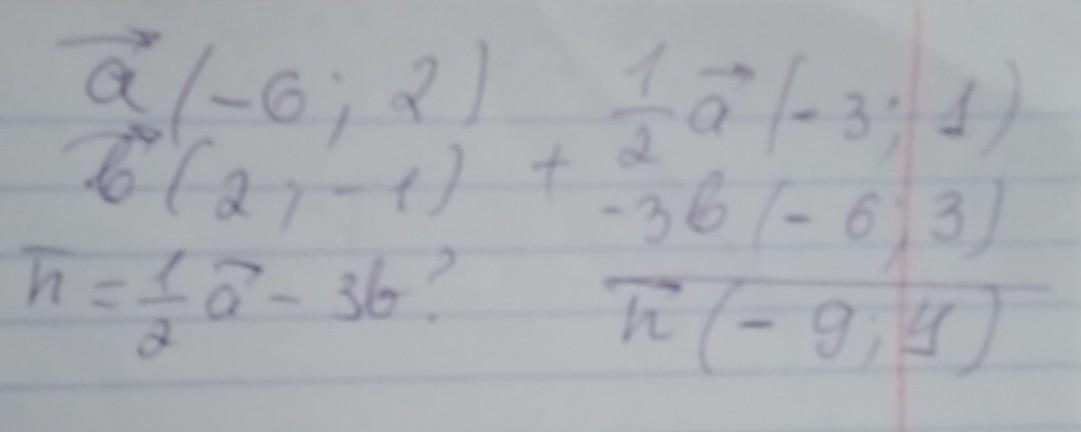 a⃗ (-6; 2)
b⃗ (2; -1)
n̅ = 1/2 a⃗ - 3b?
+ 1/2 a⃗ (-3; 1)
-3b (-6; 3)
n̅ (-9; 4)